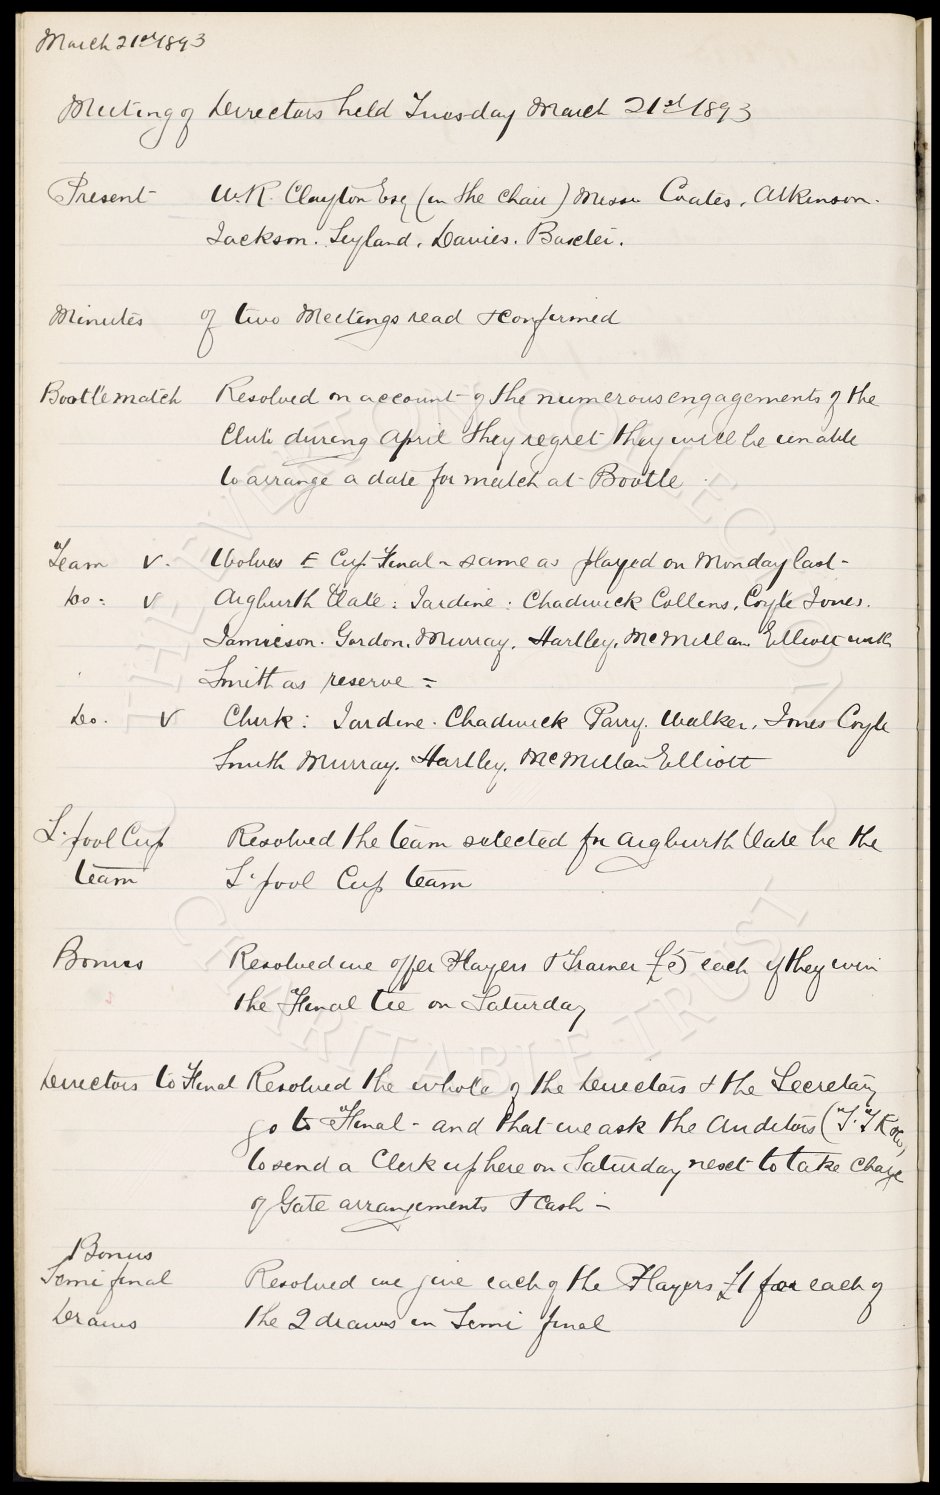 March 21st 1893
Meeting of Directors held Tuesday March 21st 1893
Present W.R. Clayton Esq (in the chair) Messrs Coates. Atkinson.
Jackson. Leyland. Davies. Baxter.
Minutes of two Meetings read & confirmed
Bootle match Resolved on account of the numerous engagements of the
Club during April they regret they will be unable
to arrange a date for match at Bootle
Team v. Wolves E Cup Final - same as played on Monday last -
Do: v Aigburth Vale: Jardine: Chadwick Collins. Coyle Jones.
Jamieson. Gordon. Murray. Hartley. McMillan Elliott with
Smith as reserve =
Do. v Chirk: Jardine. Chadwick Parry. Walker. Jones Coyle
Smith Murray. Hartley. McMillan Elliott
L'pool Cup Resolved the team selected for Aigburth Vale be the
team L'pool Cup team
Bonus Resolved we offer Players & Trainer £5 each if they win
the Final tie on Saturday
Directors to Final Resolved the whole of the Directors & the Secretary
go to Final - and that we ask the Auditors
to send a Clerk up here on Saturday next to take charge
of Gate arrangements & cash -
Bonus
Semi final Resolved we give each of the Players £1 for each of
Draws the 2 draws in Semi final
THE EVERTON COLLECTION
CHARITABLE TRUST